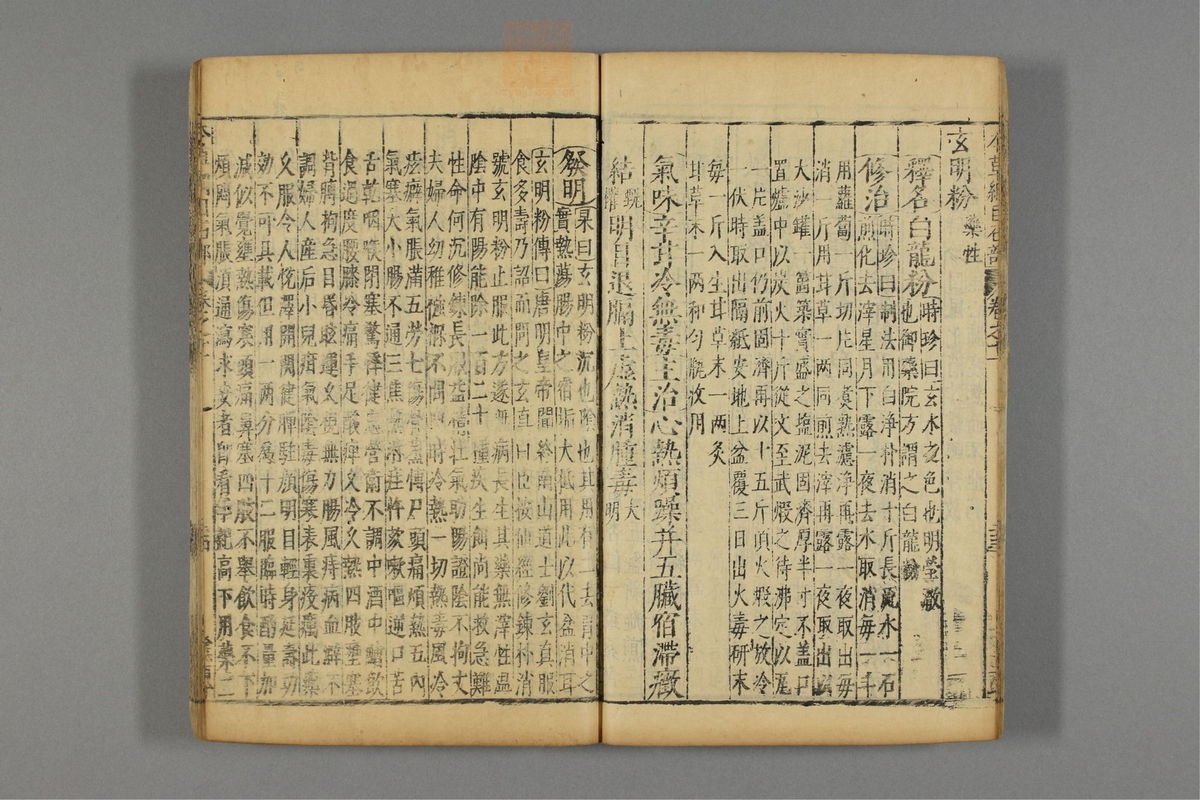 玄明粉藥性
釋名白龍粉時珍曰玄水之色也明瑩徹
也御藥院方謂之白龍粉
修治時珍曰制法用白淨朴消十斤長流水一石
煎化去滓星月下露一夜去水取消每一斗
用蘿蔔一斤切片同煑熟濾淨再露一夜取出每
消一斤用甘草一兩同煎去滓再露一夜取出以
大沙罐一箇築實盛之塩泥固濟厚半寸不盖口
置爐中以炭火十斤從文至武煅之待沸定以瓦
一片盖口仍前固濟再以十五斤頂火煅之放冷
一伏時取出隔紙安地上盆覆三日出火毒研末
每一斤入生甘草末一兩炙
甘草末一兩和勻瓶收用
氣味辛甘冷無毒主治心熱煩躁并五臟宿滯癥
結甄權明目退膈上虛熱消腫毒大明
發明杲曰玄明粉沉也陰也其用有二去胃中之
實熱蕩腸中之宿垢大抵用此以代盆消耳
玄明粉傳曰唐明皇帝聞終南山道士劉玄真服
食多壽乃詔而問之玄真曰臣按仙經修鍊朴消
號玄明粉止服此方遂無病長生其藥無滓性温
陰中有陽能除一百二十種疾生餌尚能救急難
性命何況修鍊長服益精壯氣助陽證陰不拘丈
夫婦人幼稚襁褓不問四時冷熱一切熱毒風冷
痃癖氣脹滿五勞七傷骨蒸傳尸頭痛煩熱五內
氣塞大小腸不通三焦熱淋疰忤欬嗽嘔逆口苦
舌乾咽喉閉塞驚悸健忘營衛不調中酒中鱠飲
食過度腰膝冷痛手足酸痺久冷久熱四肢壅塞
背膊拘急目昏眩運久視無力腸風痔病血癖不
調婦人産后小兒疳氣陰毒傷寒表裏疫癘此藥
久服令人悅澤開關健脾駐顏明目輕身延壽功
効不可具載但用一兩分爲十二服臨時酌量加
減似覺壅熱傷寒頭痛鼻塞四肢不舉飲食不下
煩悶氣脹須通瀉求安者即看年紀高下用藥二